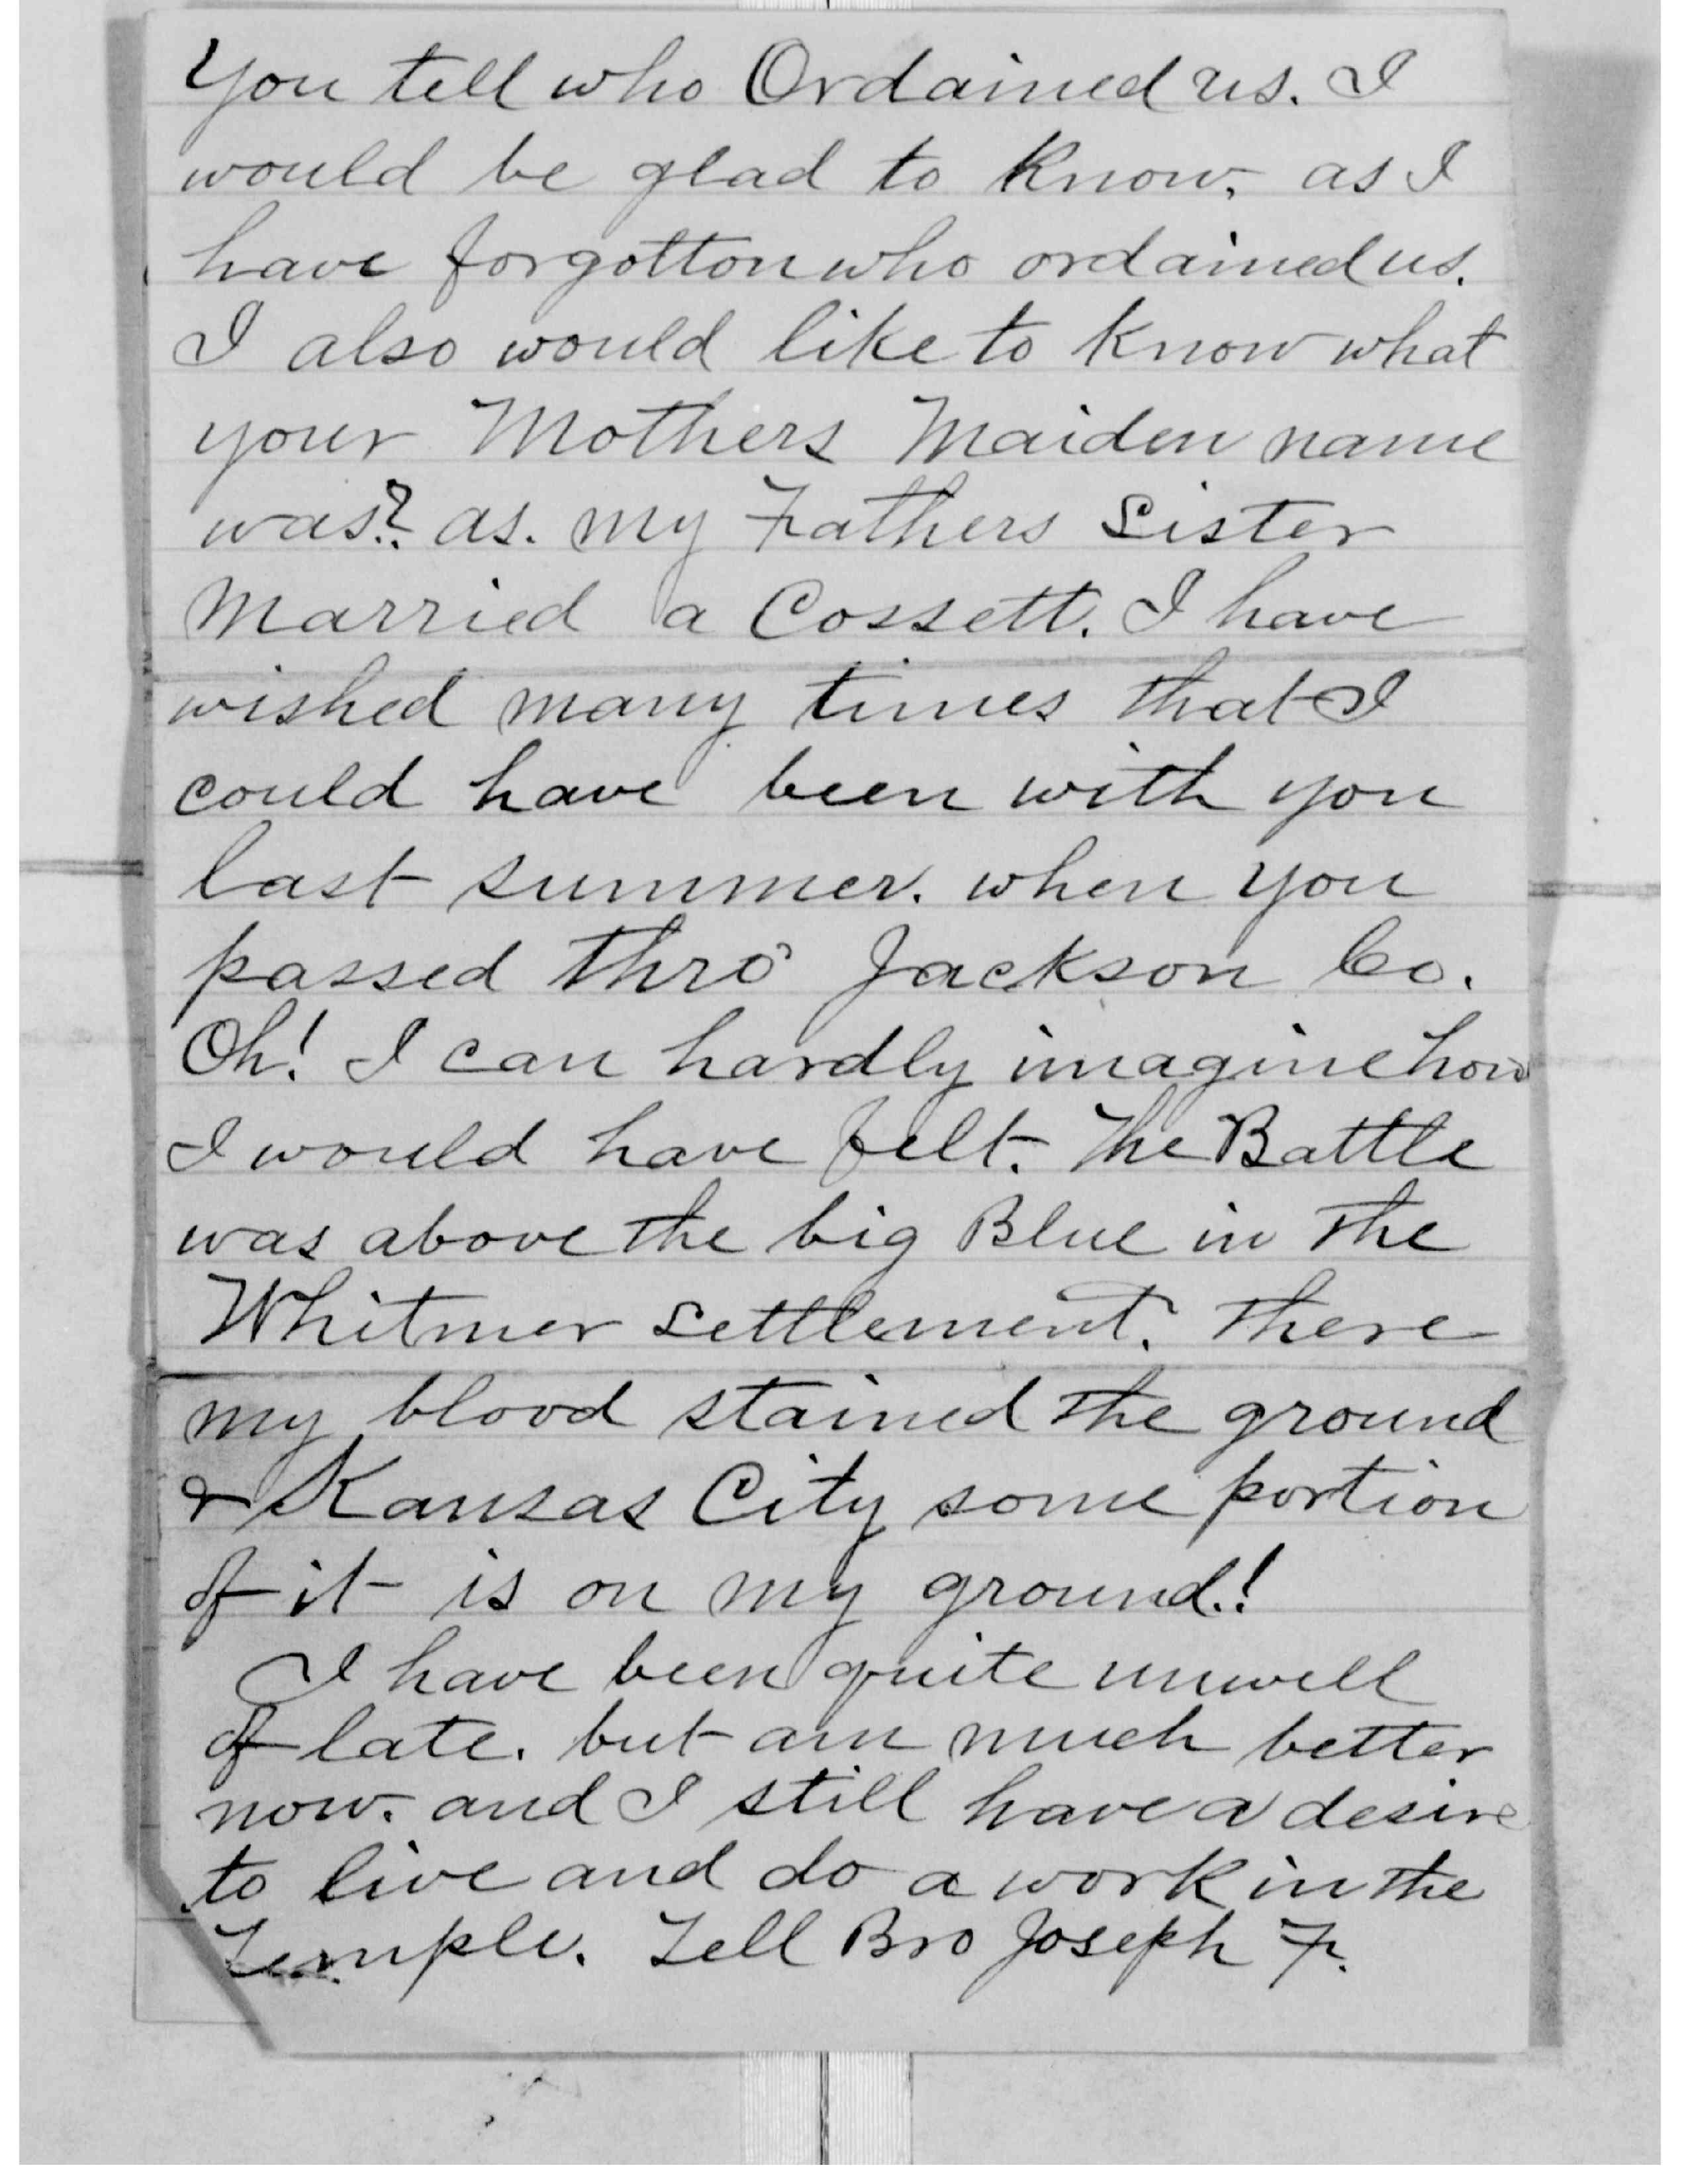 You tell who Ordained us. I
would be glad to know, as I
have forgotton who ordained us.
I also would like to know what
your Mothers Maiden name
was? as. my Fathers Sister
Married a Cossett. I have
wished many times that I
could have been with you
last summer. when you
passed thro' Jackson Co.
Oh! I can hardly imagine how
I would have felt. The Battle
was above the big Blue in the
Whitmer Settlement. There
my blood stained the ground
& Kansas City some portion
of it is on my ground.!
I have been quite unwell
of late. but am much better
now. and I still have a desire
to live and do a work in the
Temple. Tell Bro Joseph F.